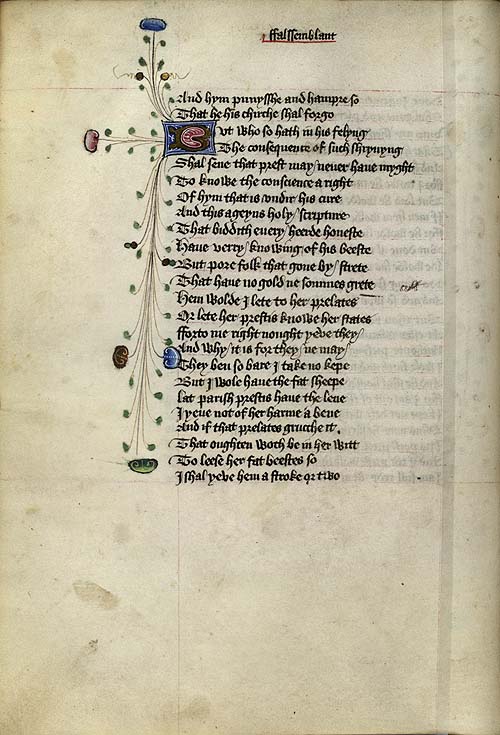 ffalssemblant
And hym punysshe and hampre so
That he his chirche shal forgo
But who so hath in his felyng
The consequence of such shryuyng
Shal sene that prest may never have myght
To knowe the conscience a right
Of hym that is vndir his cure
And this ageyns holy scripture
That biddith euery heerde honeste
Have verry knowing of his beeste
But pore folk that gone by strete
That have no gold ne sommes grete
Hem wolde I lete to her prelates
Or lete her prestis knowe her states
fforto me right nought yeve they
And why it is for they ne may
They ben so bare I take no kepe
But I wole haue the fat sheepe
lat parish prestis have the lene
I yeve not of her harme a bene
And if that prelates grucche it
That oughten woth be in her witt
To leese her fat beestes so
I shal yeve hem a stroke or two